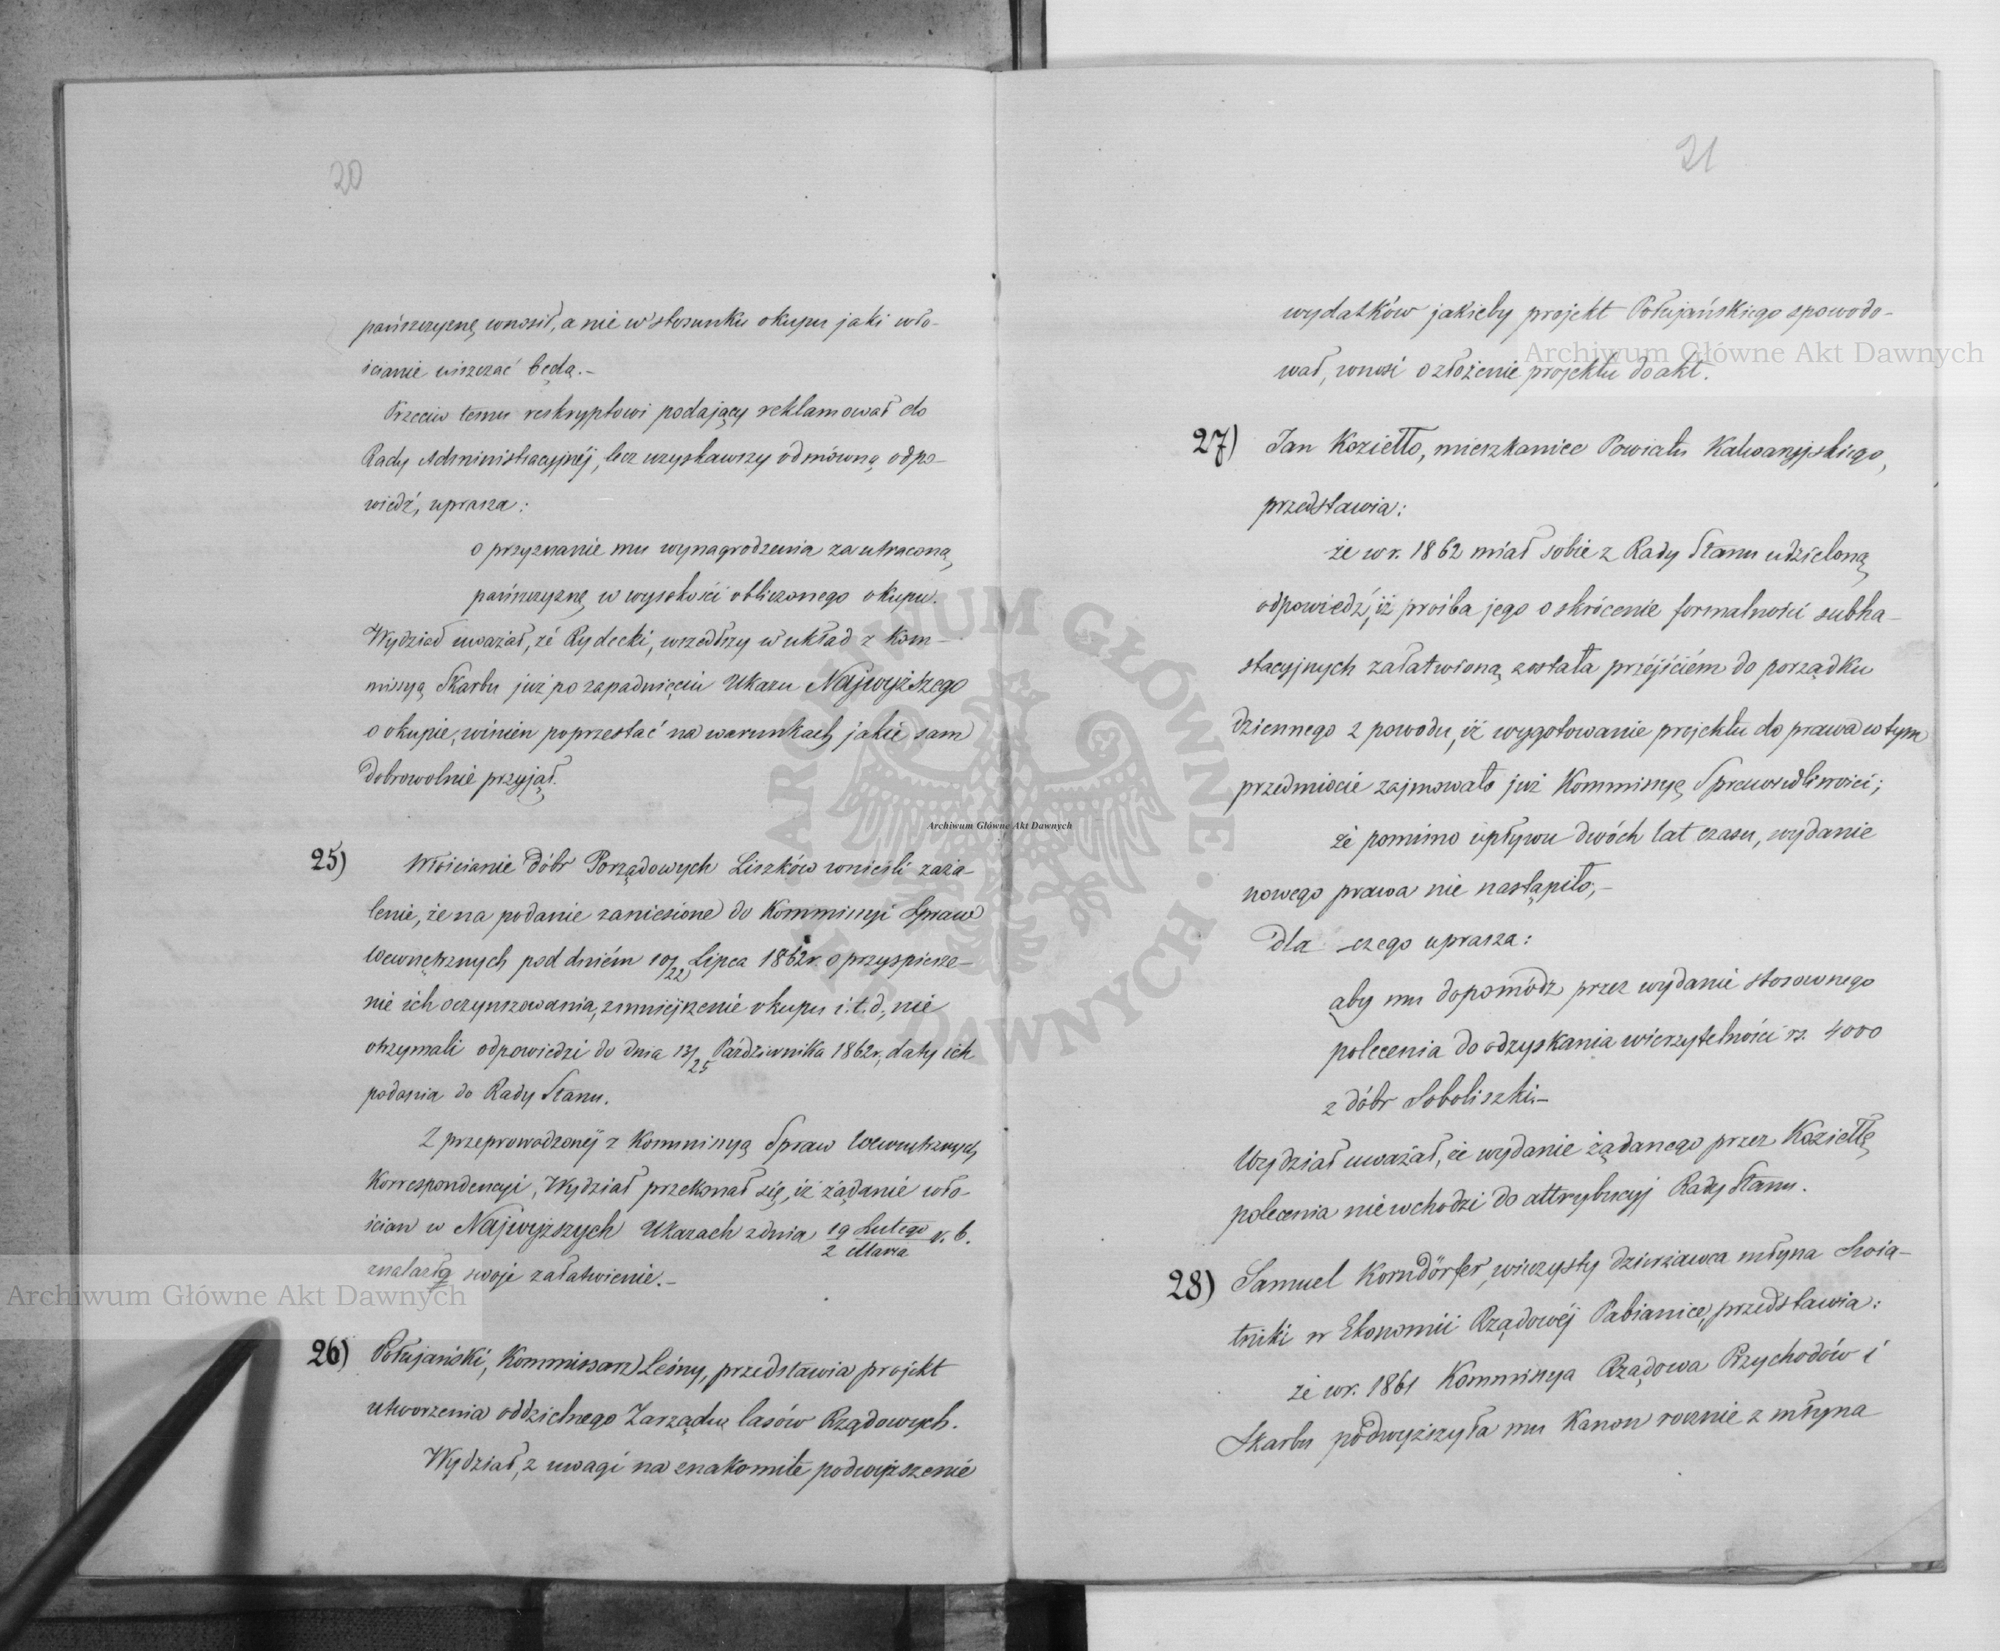 20
pańszczyznę wnosił, a nie w stosunku okupu jaki wło-
ścianie uiszczać będą.-
Przeciw temu reskryptowi podający reklamował do
Rady Administracyjnéj, lecz uzyskawszy odmówną odpo-
wiedź, uprasza:
o przyznanie mu wynagrodzenia za utraconą
pańszczyznę w wysokości obliczonego okupu.
Wydział uważał, że Rydecki, wszedłszy w układ z Kom-
missyą Skarbu już po zapadnięciu Ukazu Najwyższego
o okupie, winien poprzestać na warunkach jakie sam
dobrowolnie przyjął.
25) Włościanie dóbr Porządowych Liszków wnieśli zaża-
lenie, że na podanie zaniesione do Kommissyi Spraw
Wewnętrznych pod dniém 10/22 Lipca 1862r. o przyspiesze-
nie ich oczynszowania, zmniejszenie okupu i.t.d., nie
otrzymali odpowiedzi do dnia 13/25 Października 1862r, daty ich
podania do Rady Stanu.
Z przeprowadzonéj z Kommissyą Spraw Wewnętrznych
Korrespondencyi, Wydział przekonał się, iż żądanie wło-
ścian w Najwyższych Ukazach z dnia 19 Lutego/2 Marca r. b.
znalazło swoje załatwienie.-
26) Połujański, Kommissarz Leśny, przedstawia projekt
utworzenia oddzielnego Zarządu lasów Rządowych.
Wydział, z uwagi na znakomite podwyższenie
21
wydatków jakieby projekt Połujańskiego spowodo-
wał, wnosi o złożenie projektu do akt.
27) Jan Koziełło, mieszkaniec Powiatu Kalwaryjskiego,
przedstawia:
że w r. 1862 miał sobie z Rady Stanu udzieloną
odpowiedź, iż prośba jego o skrócenie formalności subha-
stacyjnych załatwioną została przéjściém do porządku
dziennego z powodu, iż wygotowanie projektu do prawa w tym
przedmiocie zajmowało już Kommissyę Sprawiedliwości;
że pomimo upływu dwóch lat czasu, wydanie
nowego prawa nie nastąpiło,-
dla czego uprasza:
aby mu dopomódz przez wydanie stosownego
polecenia do odzyskania wierzytelności rs. 4000
z dóbr Soboliszki.-
Wydział uważał, że wydanie żądanego przez Koziełłę
polecenia nie wchodzi do attrybucyj Rady Stanu.
28) Samuel Korndörfer, wieczysty dzierżawca młyna Swią-
tniki w Ekonomii Rządowéj Pabianice, przedstawia:
że w r. 1861 Kommissya Rządowa Przychodów i
Skarbu podwyższyła mu Kanon rocznie z młyna
Archiwum Główne Akt Dawnych
Archiwum Główne Akt Dawnych
Archiwum Główne Akt Dawnych
ARCHIWUM GŁÓWNE AKT DAWNYCH